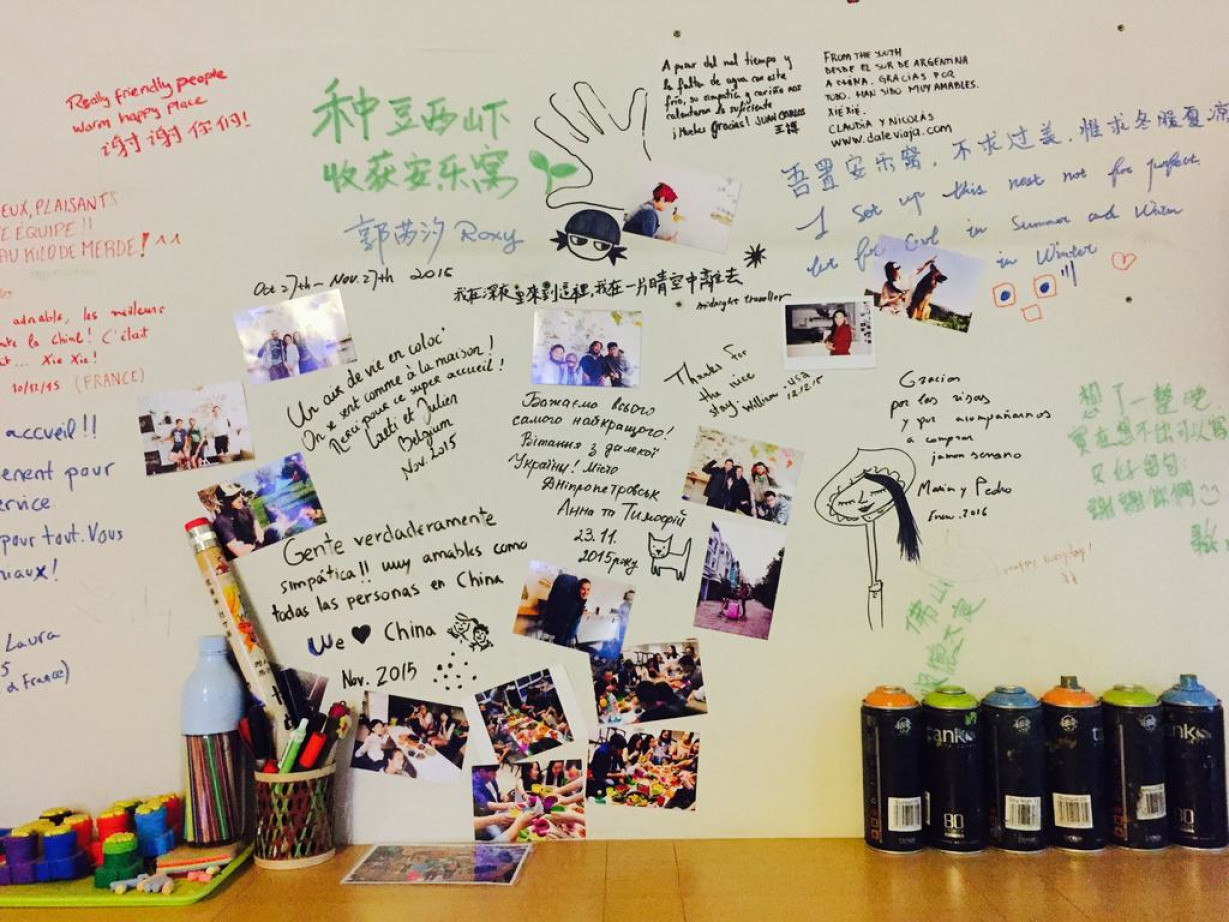 Really friendly people
warm happy place
谢谢你们!
种豆西山下
收获安乐窝
郭芮汐 Roxy
A pesar del mal tiempo y
la falta de agua con este
frío, su simpatía y cariño nos
calentaron lo suficiente
¡Muchas Gracias! JUAN CARLOS
FROM THE SOUTH
DESDE EL SUR DE ARGENTINA
A CHINA. GRACIAS POR
TODO. HAN SIDO MUY AMABLES.
XIE XIE.
CLAUDIA Y NICOLÁS
www.daleviaja.com
吾置安乐窝,不求过美,惟求冬暖夏凉
I set up this nest not for perfect
but for Cool in Summer and Warm
in Winter
EUX, PLAISANTS
E ÉQUIPE!!
AU KILO DE MERDE! ^^
adorable, les meilleurs
la Chine! C'était
... Xie Xie!
10/12/15 (FRANCE)
accueil!!
ment pour
ervice
pour tout. Vous
niaux!
Laura
5
France)
Oct 27th - Nov. 27th 2015
我在深夜里來到這裡,我在一片晴空中離去
midnight traveller
Un air de vie en coloc'
On se sent comme à la maison!
Merci pour ce super accueil!
Laeti et Julien
Belgium
Nov. 2015
Бажаємо всього
самого найкращого!
Вітання з далекої
України! Місто
Дніпропетровськ
Анна та Тимофій
23.11.
2015року
Thanks For
the nice
stay. William. USA
12.12.15
Gracias
por las risas
y por acompañarnos
a comprar
jamon serrano
Maria y Pedro
Ener. 2016
想了一整晚
實在想不出可以寫
只好留句:
謝謝你們
Gente verdaderamente
simpática!! muy amables como
todas las personas en China
We ♥ China
Nov. 2015
佛山
tank
80